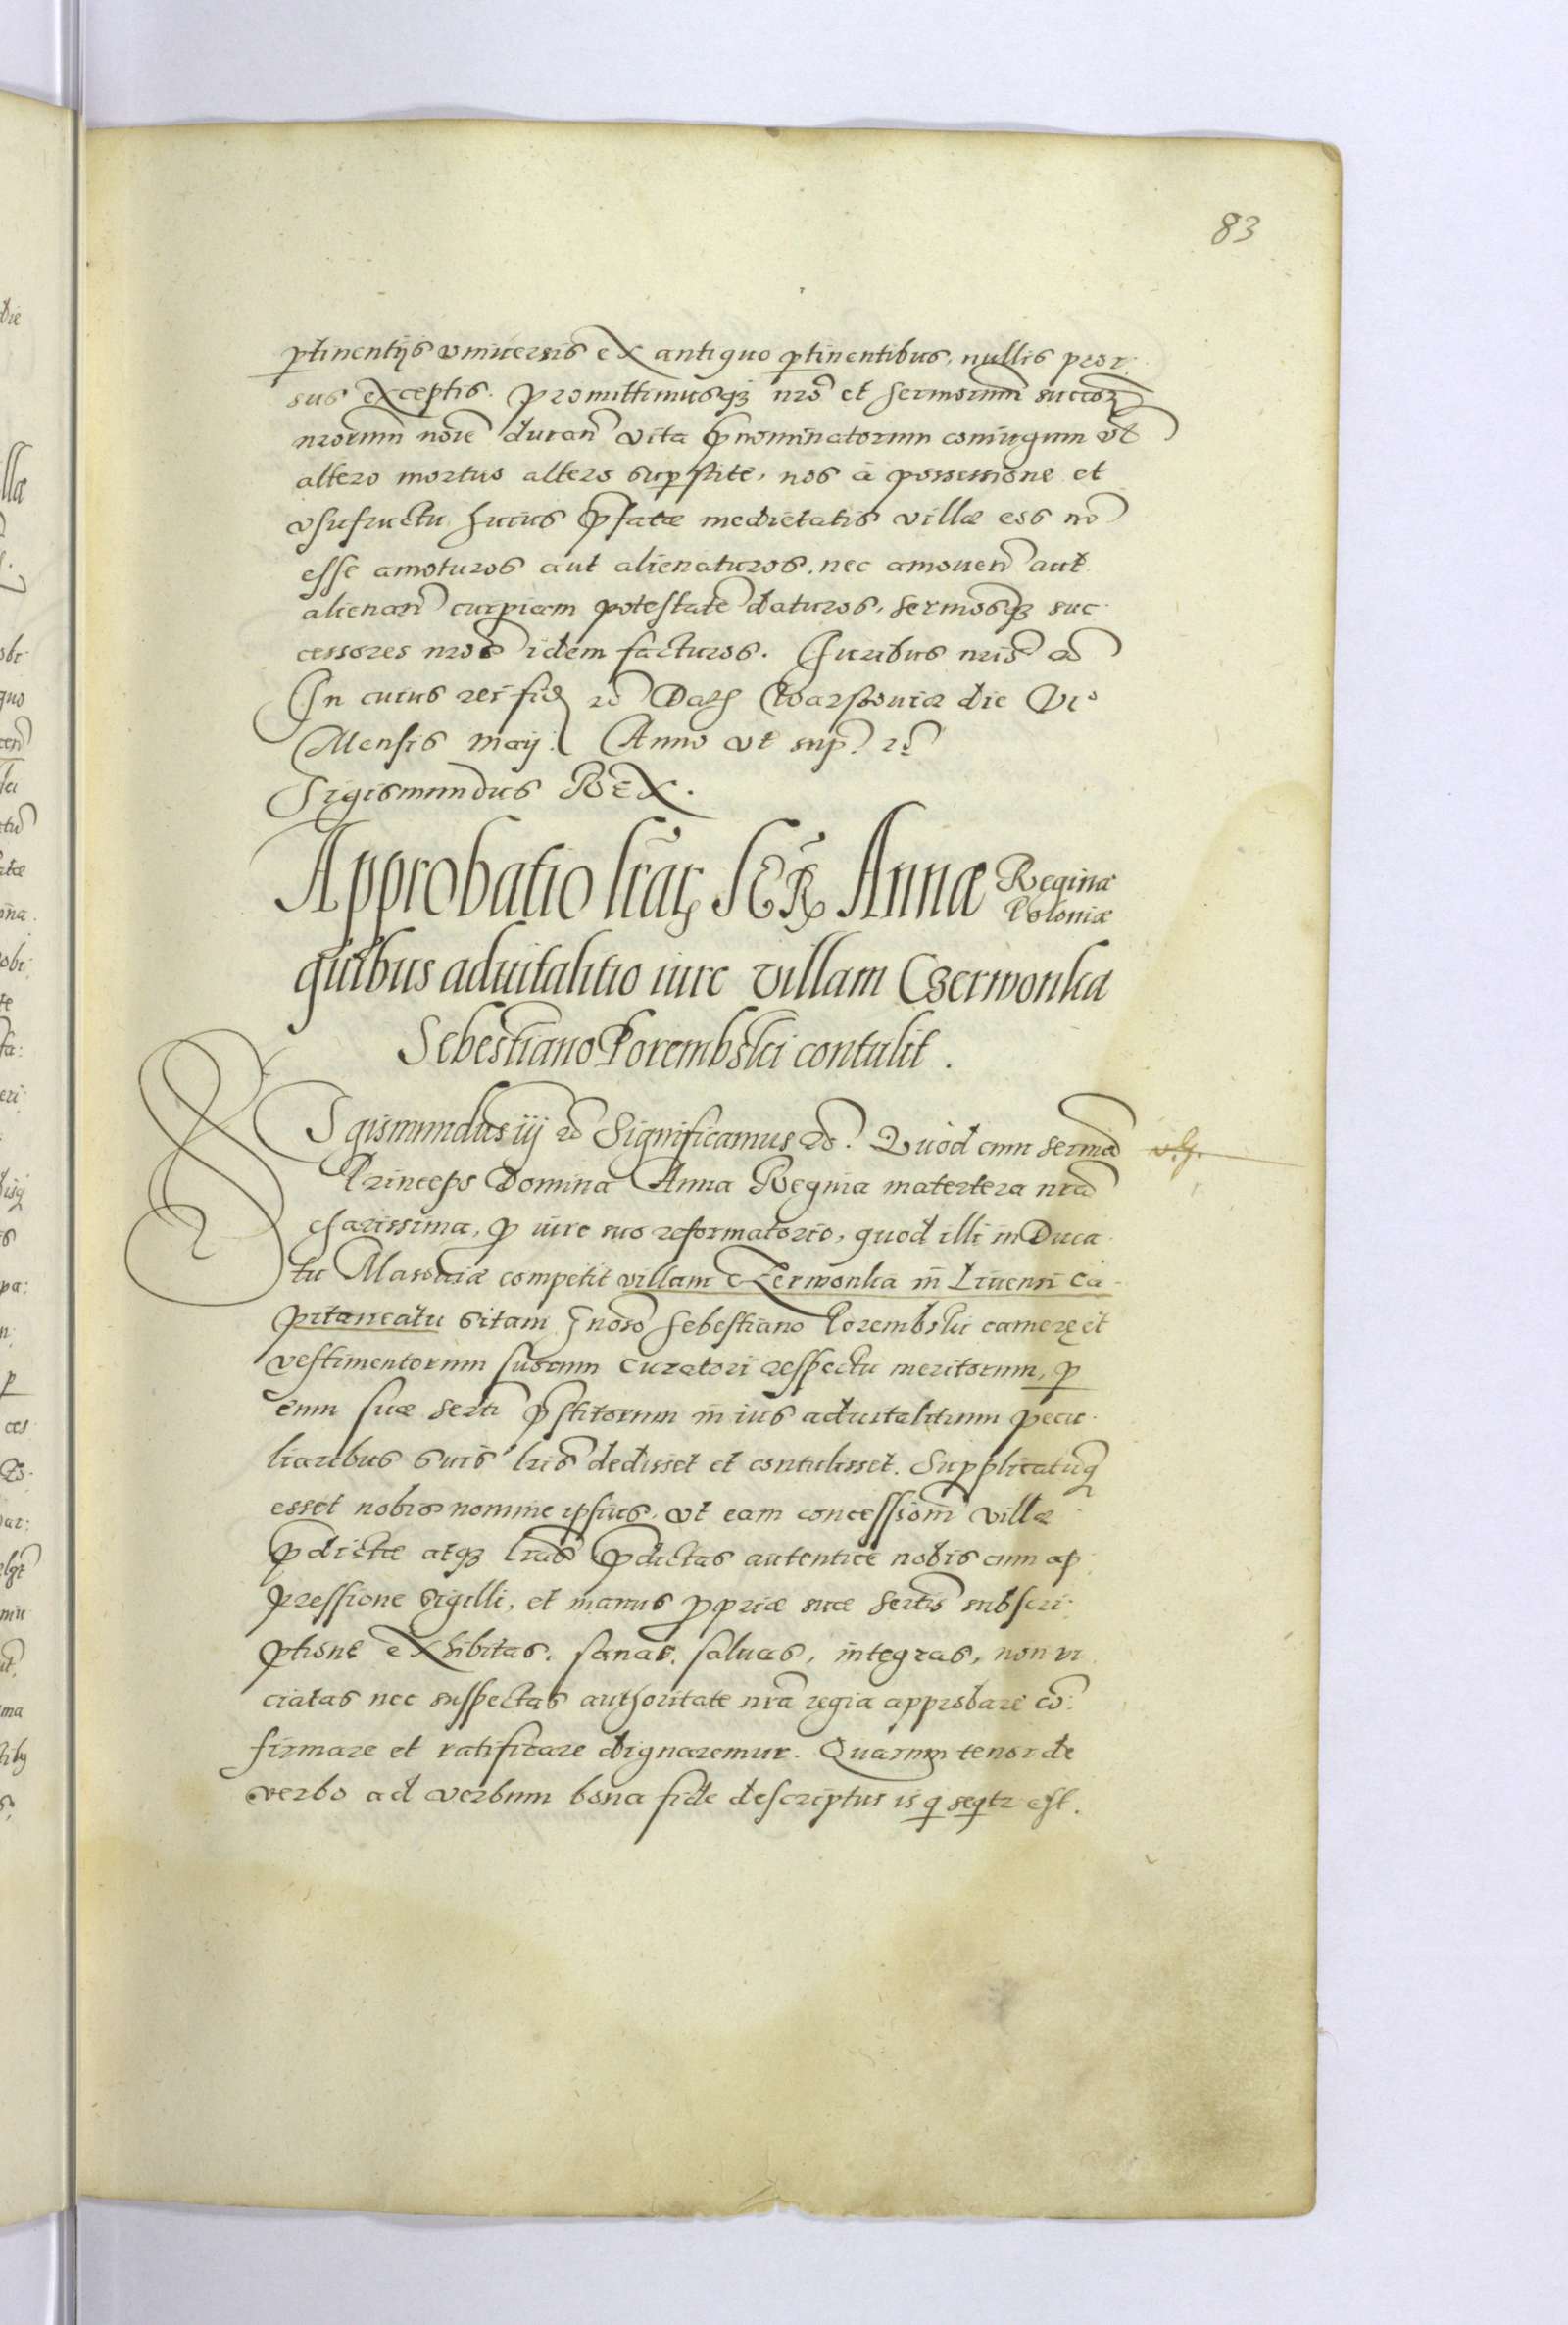 83
ptinentijs vniuersis ex antiquo ptinentibus, nullis pror:
sus exceptis. Promittimusq; nro et sermorum succor
nrorum noie duran vita pnominatorum coniugum vt
altero mortuo altero supstite, nos a possessione et
vsufructu huius pfatae medietatis villae eos no
esse amoturos aut alienaturos, nec amouen aut
alienan cuipiam potestate daturos, sermosq; suc
cessores nros idem facturos. Iuribus nris &
In cuius rei fid &. Dat Warssouiae die VIo
Mensis Maij. Anno vt sup. &
Sigismundus REX.
Approbatio lrar SRM Annae Reginae
Poloniae
quibus aduitalitio iure villam Czerwonka
Sebestiano Porembski contulit.
Sigismundus iij & Significamus &. Quod cum serma
Princeps Domina Anna Regina matertera nra
charissima, p iure suo reformatorio, quod illi in Duca
tu Masouiae competit villam Czerwonka in Liuensi Ca
pitaneatu sitam Gnoso Sebestiano Porembski camerę et
vestimentorum suorum curatori respectu meritorum, p
eum suae serti pstitorum in ius aduitalitium pecu
liaribus suis lris dedisset et contulisset. Supplicatuq
esset nobis nomine ipsius, vt eam concessionem villae
pdictae atq; lras pdictas autentice nobis cum ap
pressione sigilli, et manus ppriae suae sertis subscri
ptione exhibitas, sanas, saluas, integras, non vi
ciatas nec suspectas authoritate nra regia approbare co:
firmare et ratificare dignaremur. Quarum tenor de
verbo ad verbum bona fide descriptus is q seqtr est.